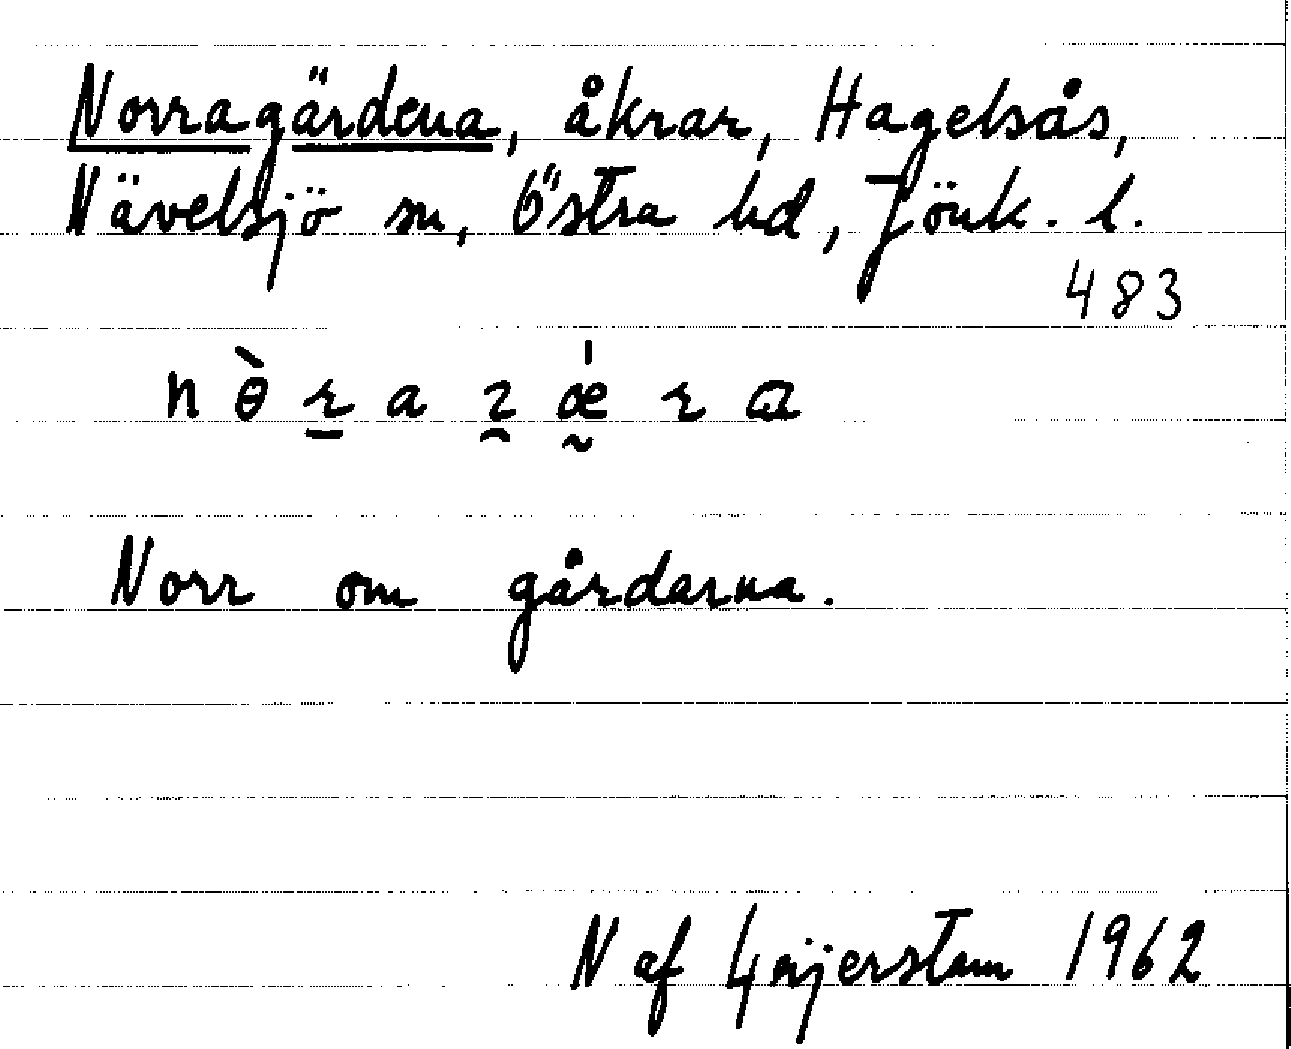 Norragärdena, åkrar, Hagelsås,
Nävelsjö sn, Östra hd, Jönk. l.
483
Norr om gårdarna.
N af Geijerstam 1962